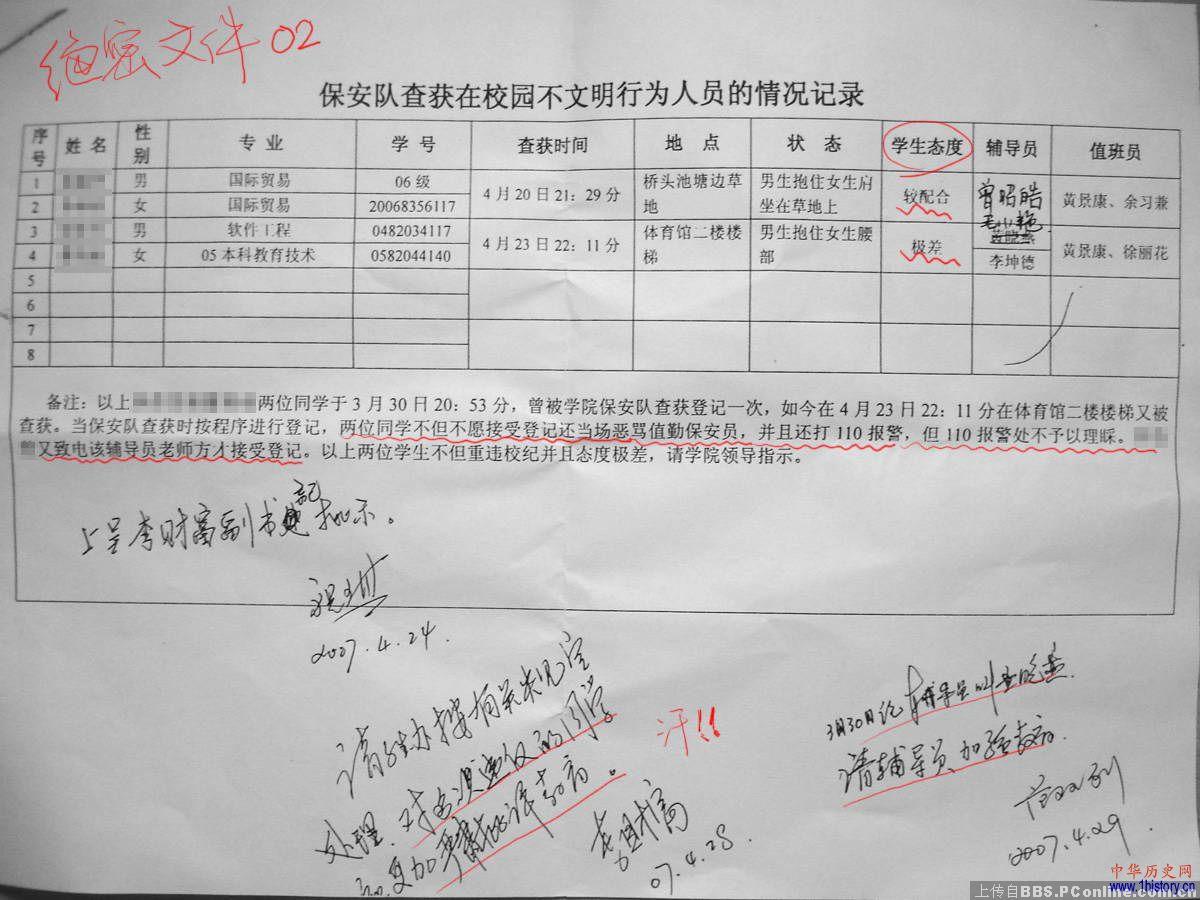 绝密文件 02
保安队查获在校园不文明行为人员的情况记录
序号 姓名 性别 专业 学号 查获时间 地点 状态 学生态度 辅导员 值班员
1 男 国际贸易 06 级 4 月 20 日 21：29 分 桥头池塘边草地 男生抱住女生肩坐在草地上 较配合 曾昭皓 黄景康、余习兼
2 女 国际贸易 20068356117
3 男 软件工程 0482034117 4 月 23 日 22：11 分 体育馆二楼楼梯 男生抱住女生腰部 极差 黄晓燕 黄景康、徐丽花
4 女 05 本科教育技术 0582044140 李坤德
5
6
7
8
备注：以上两位同学于 3 月 30 日 20：53 分，曾被学院保安队查获登记一次，如今在 4 月 23 日 22：11 分在体育馆二楼楼梯又被
查获。当保安队查获时按程序进行登记，两位同学不但不愿接受登记还当场恶骂值勤保安员，并且还打 110 报警，但 110 报警处不予以理睬。
又致电该辅导员老师方才接受登记。以上两位学生不但重违校纪并且态度极差，请学院领导指示。
上呈李财富副书记批示。
2007.4.24.
请学生办按有关规定
处理，对的同学
要加严肃批评教育。
汗!!
李财富
07.4.28.
3月30日 辅导员叫黄晓燕.
请辅导员加强教育.
2007.4.29.
中华历史网
www.1history.cn
上传自BBS.PConline.com.cn